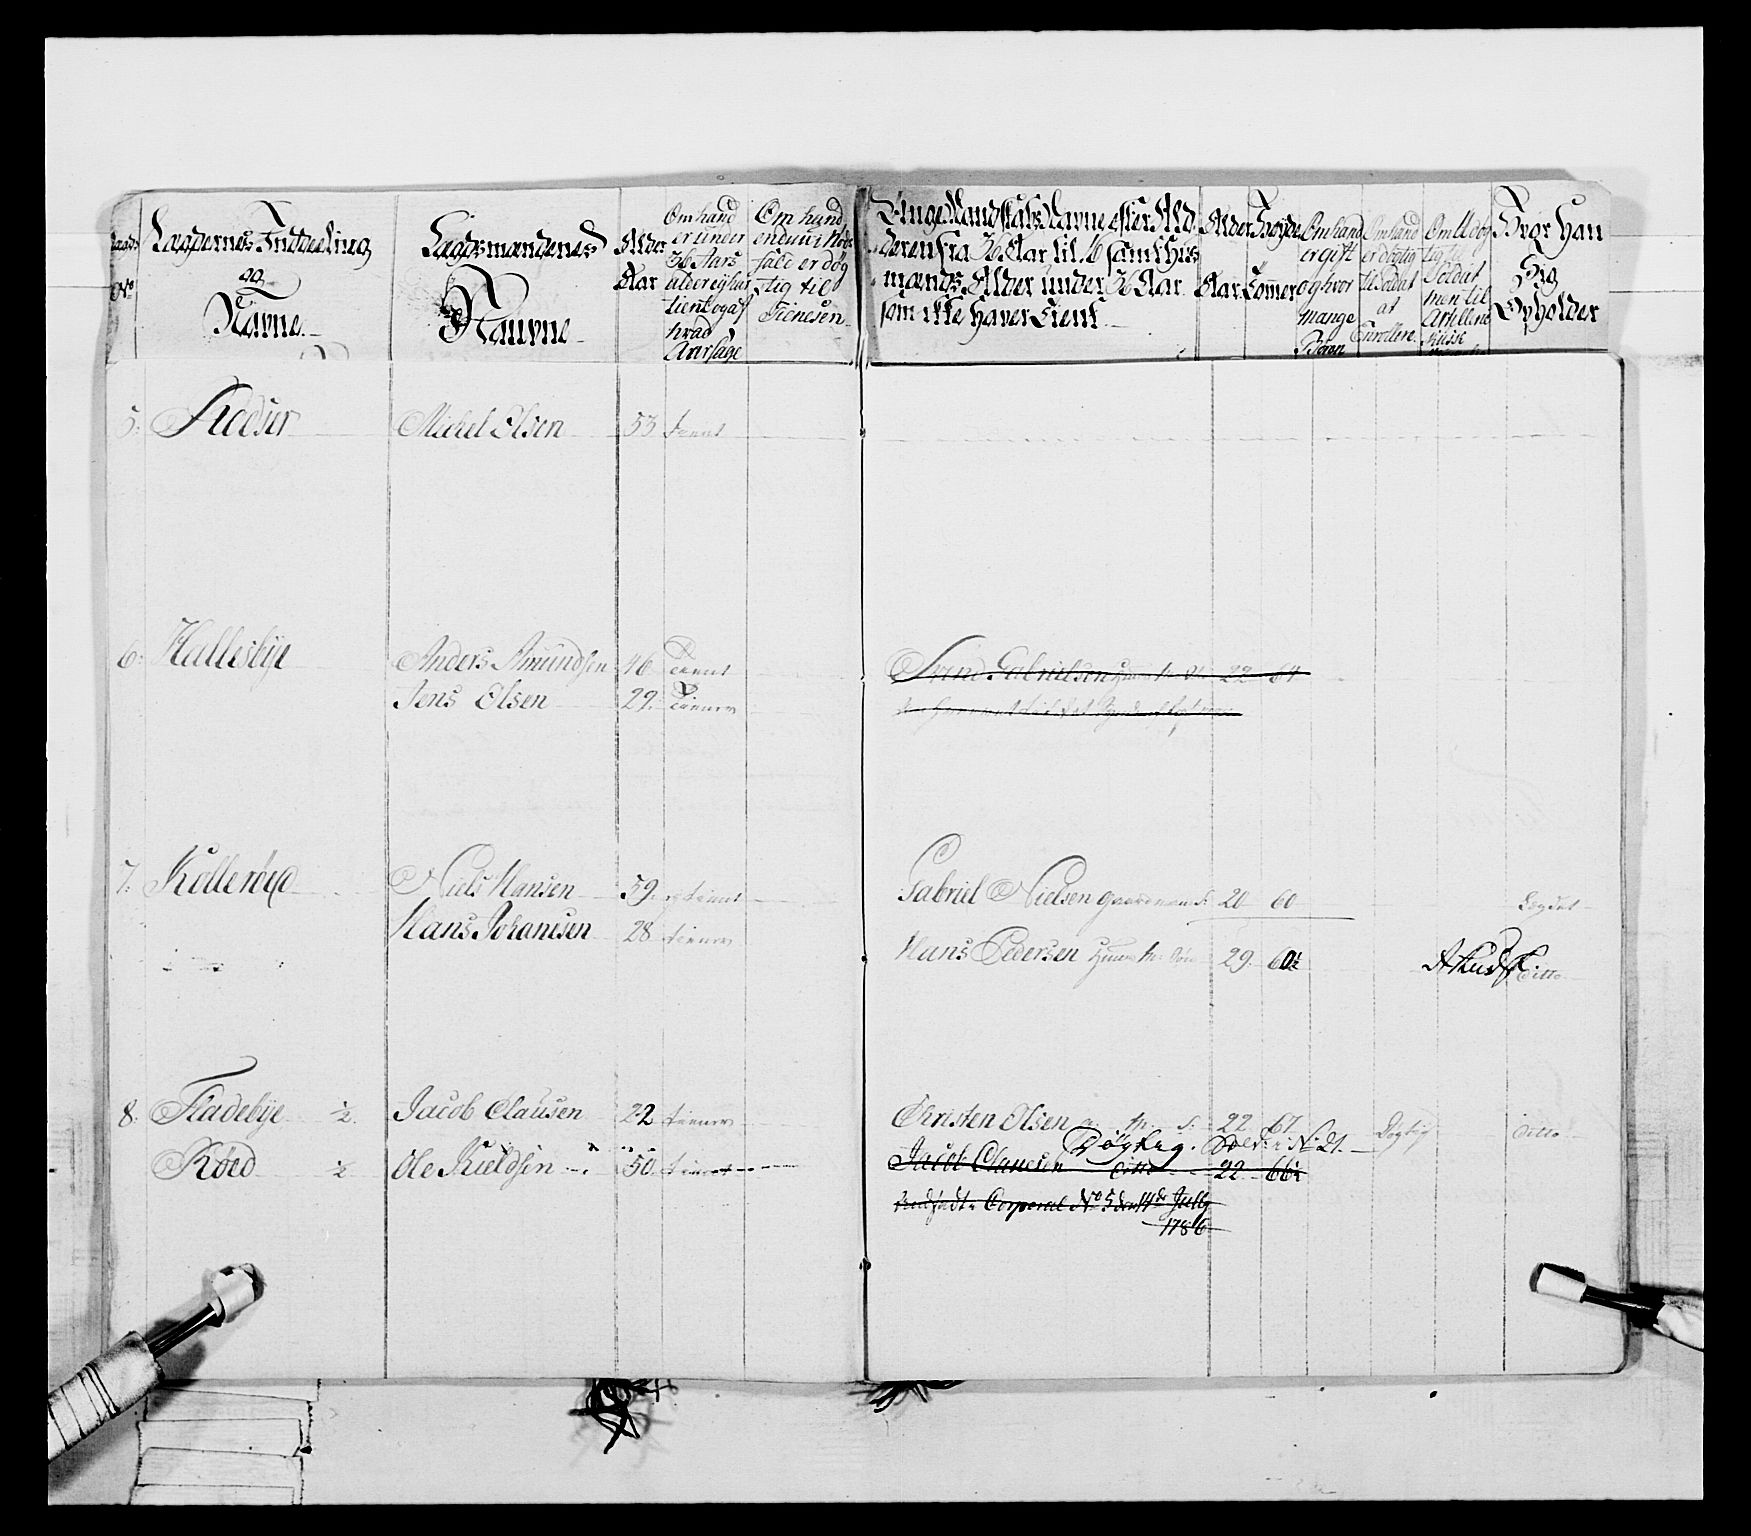 Lagd: No
Lagdernes Inddeeling
og
Navne.
Lagdsmændenes
Naune
Alder
Aar
Om hand
er under
36 Aars
alder ej har
tient og af
hvad
Aarsage
Om hand
enduu i Nøds
fald er døg
tig til
Tienesen
Unge Mandskabs Navne efter Ald
deren fra 36 Aar til 16 samt Hus
mænds Alder under 36 Aar
som ikke haver tient
Alder
Aar
Høyde
Tomer
Om hand
er gift
og hvor
mange
Børn
Om hand
er dygtig
til Soldat
at
Enrollere.
Om Udøg
tig til
Soldat
men til
Artillerie
Kusk
Hvor Han
Sig
Opholder
5: Kodser Michel Olsen 53 tient
6: Hallesbye Anders Amundsen 46 Tient Svend Gabrielsen 22 64
Jens Olsen 29. Tiener
7: Kollerøed Niels Hansen 59. tient Gabriel Nielsen Gaardmands S: 20 60 Logdet
Hans Johansen 28 tiener Hans Pedersen 29. 60½ A Kusk Ditto
8: Fladebye ½ Jacob Clausen 22 tiener Christen Olsen 22 67 Dygtig ditto
Døgtig. No 21.
Røed ½ Ole Kieldsen 50 tient Jacob Clausen Ditto 22 66½
Corporal No 5 den 14de July
1786